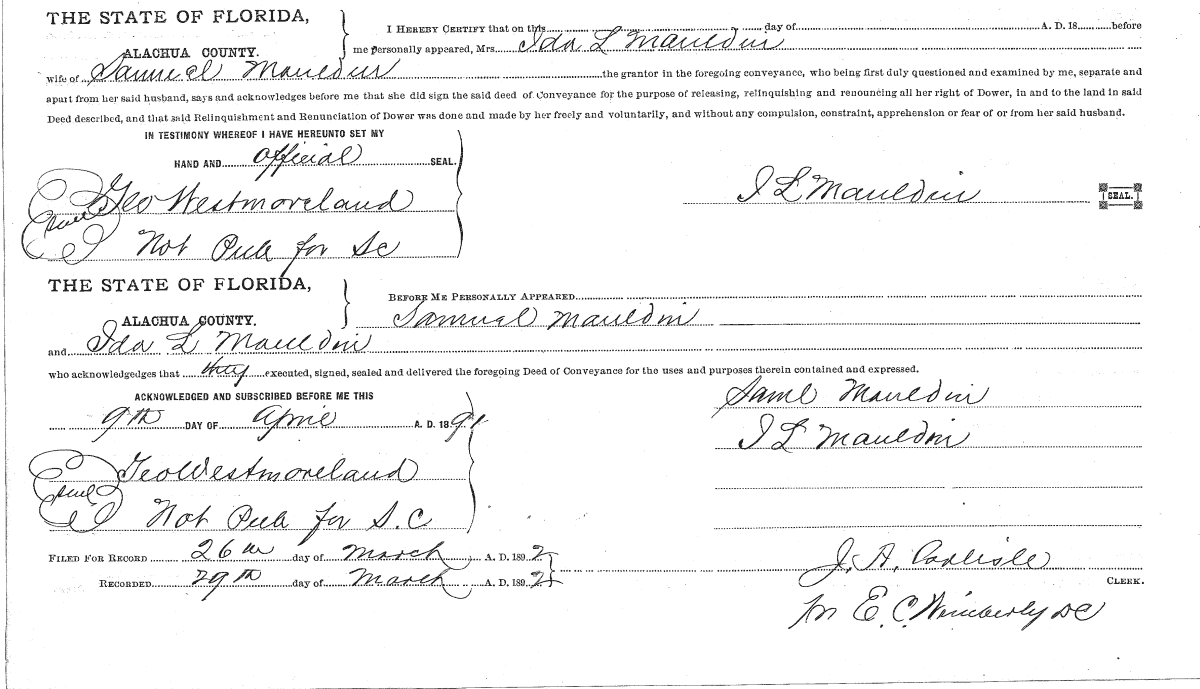 THE STATE OF FLORIDA,
ALACHUA COUNTY.
I HEREBY CERTIFY that on this day of A. D. 18 before
me personally appeared, Mrs. Ida L Mauldin
wife of Samuel Mauldin the grantor in the foregoing conveyance, who being first duly questioned and examined by me, separate and
apart from her said husband, says and acknowledges before me that she did sign the said deed of Conveyance for the purpose of releasing, relinquishing and renouncing all her right of Dower, in and to the land in said
Deed described, and that said Relinquishment and Renunciation of Dower was done and made by her freely and voluntarily, and without any compulsion, constraint, apprehension or fear of or from her said husband.
IN TESTIMONY WHEREOF I HAVE HEREUNTO SET MY
HAND AND official SEAL.
Seal Geo Westmoreland
Not Pub for SC
I L Mauldin SEAL.
THE STATE OF FLORIDA,
ALACHUA COUNTY.
BEFORE ME PERSONALLY APPEARED
Samual Mauldin
and Ida L Mauldin
who acknowledgedges that they executed, signed, sealed and delivered the foregoing Deed of Conveyance for the uses and purposes therein contained and expressed.
ACKNOWLEDGED AND SUBSCRIBED BEFORE ME THIS
9th DAY OF April A. D. 1891
Seal Geo Westmoreland
Not Pub for S.C
Saml Mauldin
I L Mauldin
FILED FOR RECORD 26th day of March A. D. 1892
RECORDED 29th day of March A. D. 1892
J. A. Carlisle
CLERK.
E. C. Wimberly DC